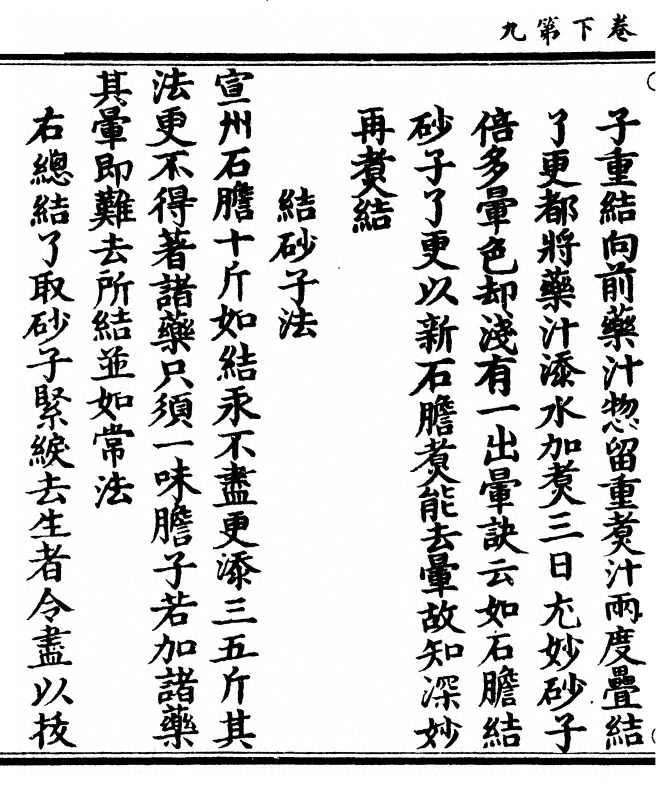 卷下第九
子重結向前藥汁惣留重煑汁兩度疊結
了更都將藥汁添水加煑三日尤妙砂子
倍多暈色却淺有一出暈訣云如石膽結
砂子了更以新石膽煑能去暈故知深妙
再煑結
結砂子法
宣州石膽十斤如結汞不盡更添三五斤其
法更不得著諸藥只須一味膽子若加諸藥
其暈即難去所結並如常法
右總結了取砂子緊綟去生者令盡以抜